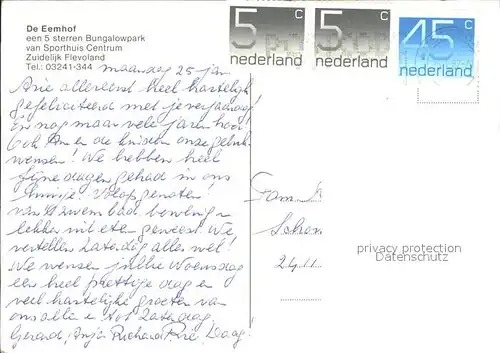 De Eemhof
een 5 sterren Bungalowpark
van Sporthuis Centrum
Zuidelijk Flevoland
Tel.: 03241-344
5 c
nederland
5 c
nederland
45 c
nederland
maandag 25 jan
Arie allereerst heel hartelijk
gefeliciteerd met je verjaardag!
en nog maar vele jaren hoor
Ook An en de kinderen onze geluk
wensen! We hebben heel
fijne dagen gehad in ons
huisje! Volop genoten
van 't zwembad bowling
lekker uit eten geweest. We
vertellen Zaterdag alles wel!
We wensen jullie Woensdag
een heel prettige dag en
veel hartelijke groeten van
ons alle en tot Zaterdag
Gerard, Anja Richard Daag!
Fam
Schoon
2411
privacy protection
Datenschutz